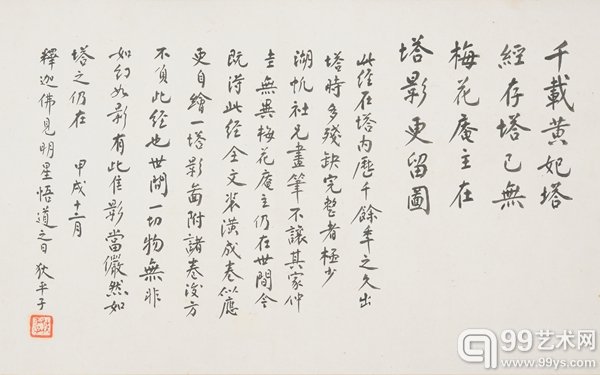 千載黃妃塔
經存塔已無
梅花庵主在
塔影更留圖
此經在塔內歷千餘年之久出
塔時多殘缺完整者極少
湖帆社兄畫筆不讓其家仲
圭無異梅花庵主仍在世間今
既得此經全文裝潢成卷似應
更自繪一塔影圖附諸卷後方
不負此經也世間一切物無非
如幻如影有此隹影當儼然如
塔之仍在 甲戌十二月
釋迦佛見明星悟道之日 狄平子
99艺术网
www.99ys.com